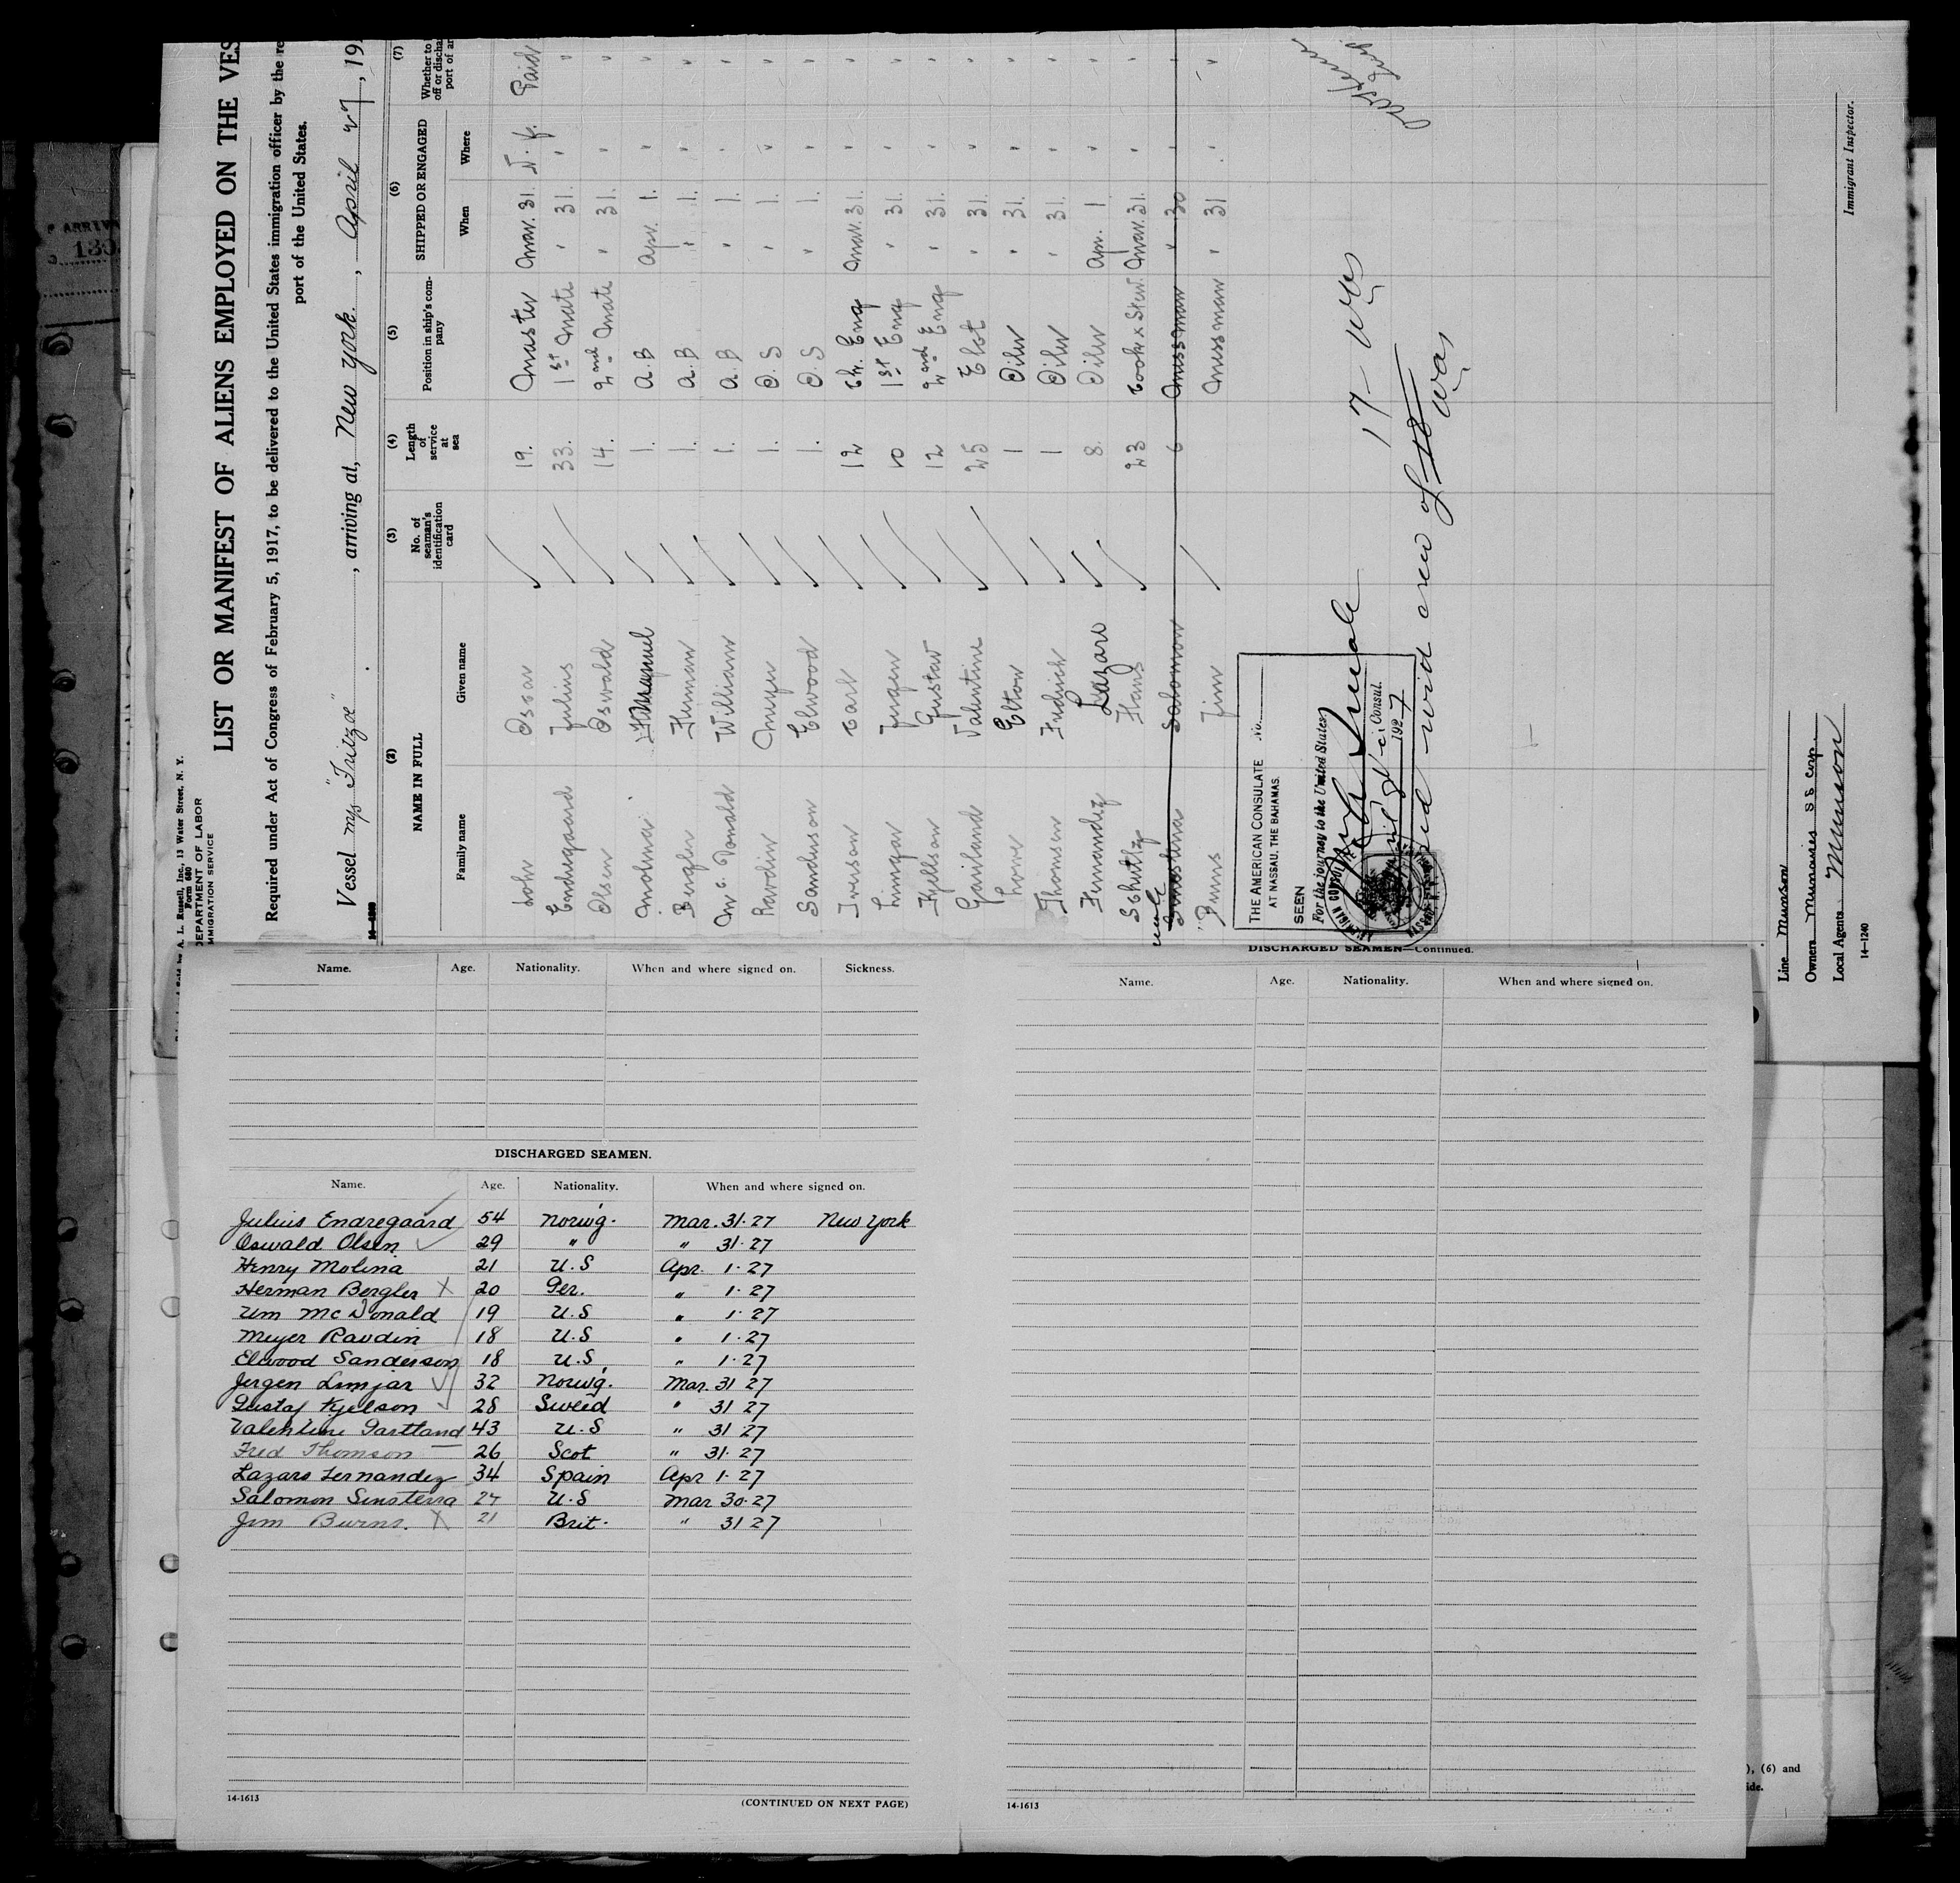 LIST OR MANIFEST OF ALIENS EMPLOYED ON THE VES
Required under Act of Congress of February 5, 1917, to be delivered to the United States immigration officer by the re
port of the United States.
A. L. Russell, Inc., 13 Water Street, N. Y.
Form 680
DEPARTMENT OF LABOR
IMMIGRATION SERVICE
Vessel m/s "Fritzoe", arriving at, New York., April 27, 19
(2) (3) (4) (5) (6) (7)
NAME IN FULL
Family name Given name
No. of seaman's identification card
Length of service at sea
Position in ship's company
SHIPPED OR ENGAGED
When Where
Whether to
off or discha
port of ar
Lohr Oscar 19. Master Mar. 31. N. Y. Paid
Endregaard Julius 33. 1st Mate " 31. " "
Olsen Oswald 14. 2nd Mate " 31. " "
Molina 1. A. B Apr. 1. " "
Bergler Herman 1. A. B " 1. " "
Mc. Donald William 1. A. B " 1. " "
Ravdin Meyer 1. O. S " 1. " "
Sanderson Elwood 1. O. S " 1. " "
Iverson Carl 12 Ch. Eng Mar. 31. " "
Limgar Jergen 10 1st Eng " 31. " "
Kjellson Gustav 12 2nd Eng " 31. " "
Gartland Valentine 25 Elct " 31. " "
Lowe Elton 1 Oiler " 31. " "
Thomson Fredrich 1 Oiler " 31. " "
Fernandez Lazaro 8. Oiler Apr. 1 " "
Schultz Hans 23 Cook & Stew. Mar. 31. " "
Sinesterra Salomon 6 Messman " 30 " "
Burns Jim Messman " 31 " "
THE AMERICAN CONSULATE No.
AT NASSAU, THE BAHAMAS.
SEEN
For the journey to the United States
Consul.
1927
17 - was
crew of 18 was
Line Munson
Owners Munaires SS Corp.
Local Agents Munson
14-1240
Immigrant Inspector.
Name. Age. Nationality. When and where signed on. Sickness.
DISCHARGED SEAMEN.
Name. Age. Nationality. When and where signed on.
Julius Endregaard 54 Norwg. Mar. 31. 27 New York
Oswald Olsen 29 " " 31. 27
Henry Molina 21 U. S Apr. 1. 27
Herman Bergler X 20 Ger. " 1. 27
Wm Mc Donald 19 U. S " 1. 27
Meyer Ravdin 18 U. S " 1. 27
Elwood Sanderson 18 U. S " 1. 27
Jergen Limjar 32 Norwg. Mar. 31 27
Gustaf Kjelson 28 Sweed " 31 27
Valentine Gartland 43 U. S " 31 27
Fred Thomson 26 Scot " 31. 27
Lazaro Fernandez 34 Spain Apr 1. 27
Salomon Sinsterra 27 U. S Mar 30. 27
Jim Burns. X 21 Brit. " 31 27
14-1613
(CONTINUED ON NEXT PAGE)
DISCHARGED SEAMEN—Continued.
Name. Age. Nationality. When and where signed on.
14-1613
), (6) and
ide.